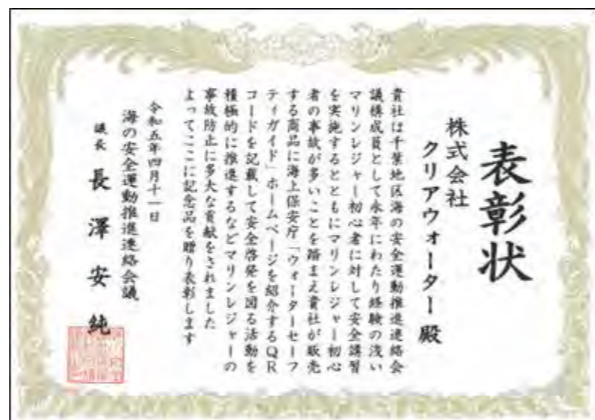 表彰状
株式会社
クリアウォーター殿
貴社は千葉地区海の安全運動推進連絡会
議構成員として永年にわたり経験の浅い
マリンレジャー初心者に対して安全講習
を実施するとともにマリンレジャー初心
者の事故が多いことを踏まえ貴社が販売
する商品に海上保安庁「ウォーターセーフ
ティガイド」ホームページを紹介するQR
コードを記載して安全啓発を図る活動を
積極的に推進するなどマリンレジャーの
事故防止に多大な貢献をされました
よってここに記念品を贈り表彰します
令和五年四月十一日
海の安全運動推進連絡会議
議長 長澤安純